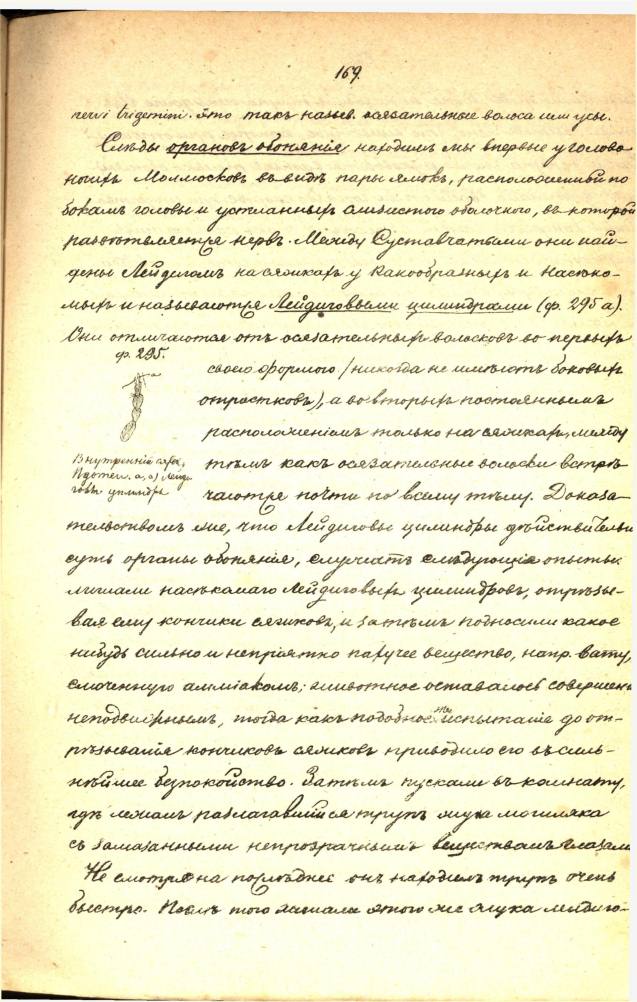 169.
nervi trigemini. Это такъ назыв. осязательные волоса или усы.
Слѣды органовъ обонянія находимъ мы впервые у голово-
ногихъ Моллюсковъ въ видѣ пары ямокъ, расположенной по
бокамъ головы и устланныхъ слизистою оболочкою, въ которой
развѣтвляется нервъ. Между Суставчатыми они най-
дены Лейдигомъ на сяжкахъ у Ракообразныхъ и Насѣко-
мыхъ и называются Лейдиговыми цилиндрами (ф. 295 а).
Они отличаются отъ осязательныхъ волосковъ во первыхъ
ф. 295.
а
Внутренній
а, а) Лейди-
говы цилиндры
своею формою (никогда не имѣютъ боковыхъ
отростковъ), а во вторыхъ постояннымъ
расположеніемъ только на сяжкахъ, между
тѣмъ какъ осязательные волоски встрѣ-
чаются почти по всему тѣлу. Доказа-
тельствомъ же, что Лейдиговы цилиндры дѣйствительн
суть органы обонянія, служатъ слѣдующіе опыты:
лишали насѣкомаго Лейдиговыхъ цилиндровъ, отрѣзы-
вая ему кончики сяжковъ, и затѣмъ подносили какое
нибудь сильно и непріятно пахучее вещество, напр. вату,
смоченную амміакомъ; животное оставалось совершен
неподвижнымъ, тогда какъ подобное же испытаніе до от-
рѣзыванія кончиковъ сяжковъ приводило его въ силь-
нѣйшее безпокойство. Затѣмъ пускали въ комнату,
гдѣ лежалъ разлагавшійся трупъ жука могиляка
съ замазанными непрозрачнымъ веществомъ глазами
Не смотря на послѣднее онъ находилъ трупъ очень
быстро. Послѣ того лишали этого же жука лейдиго-